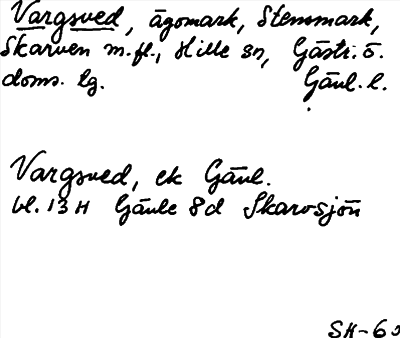 Vargsved, ägomark, Stenmark,
Skarven m.fl., Hille sn, Gästr. ö.
doms. lg. Gävl. l.
Vargsved, ek Gävl.
bl. 13 H Gävle 8d Skarvsjön
SH-6